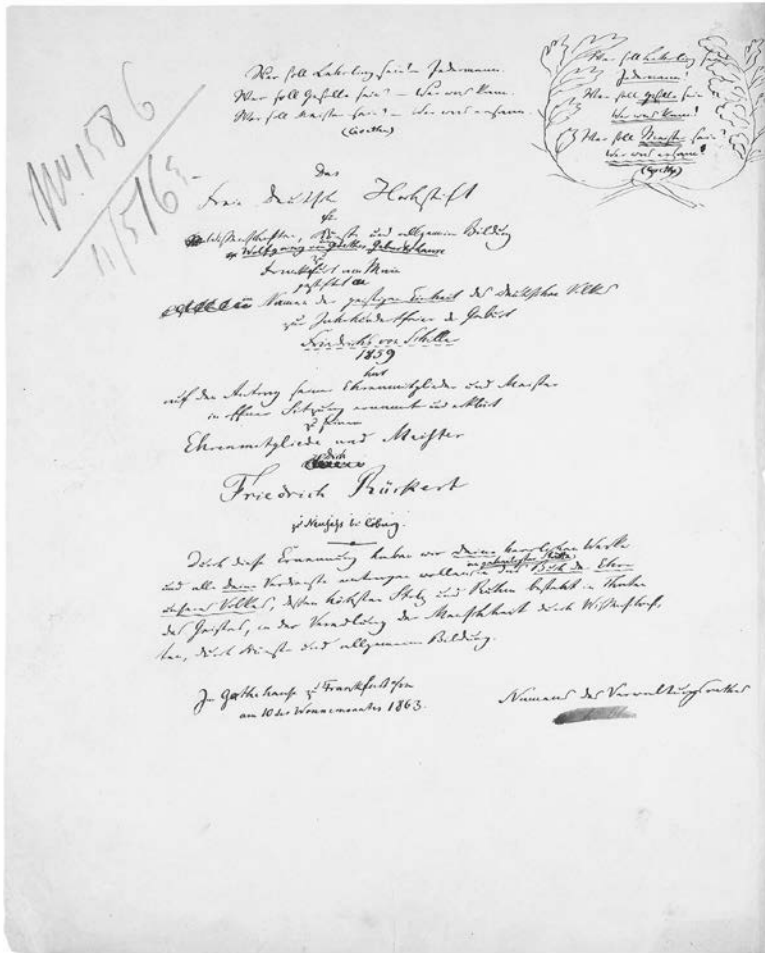 No. 1586
11/5/63.
Wer soll Lehrling sein? – Jedermann.
Wer soll Geselle sein? – Wer was kann.
Wer soll Meister sein? – Wer was ersann.
(Goethe)
Wer soll Lehrling sein?
Jedermann!
Wer soll Geselle sein
Wer was kann!
Wer soll Meister sein?
Wer was ersann!
(Goethe)
Das
Freie Deutsche Hochstift
für
Wissenschaften, Künste und allgemeine Bildung
in Wolfgang von Goethes Geburtshause
zu
Frankfurt am Main
gestiftet
Namen der geistigen Einheit des deutschen Volkes
zur Jahrhundertfeier der Geburt
Friedrichs von Schiller
1859
hat
auf den Antrag seiner Ehrenmitglieder und Meister
in offner Sitzung ernannt und erklärt
zu seinem
Ehrenmitgliede und Meister
Dich
Friedrich Rückert
zu Neuseß bei Coburg.
Durch diese Ernennung haben wir Deine herrlichen Werke
und alle Deine Verdienste eintragen wollen in das Buch der Ehren
unseres Volkes, dessen höchster Stolz und Ruhm besteht in Thaten
des Geistes, in der Veredlung der Menschheit durch Wissenschaf-
ten, durch Künste und allgemeine Bildung.
Im Goethehause zu Frankfurt a/m
am 10 des Wonnemonates 1863.
Namens des Verwaltungsrathes